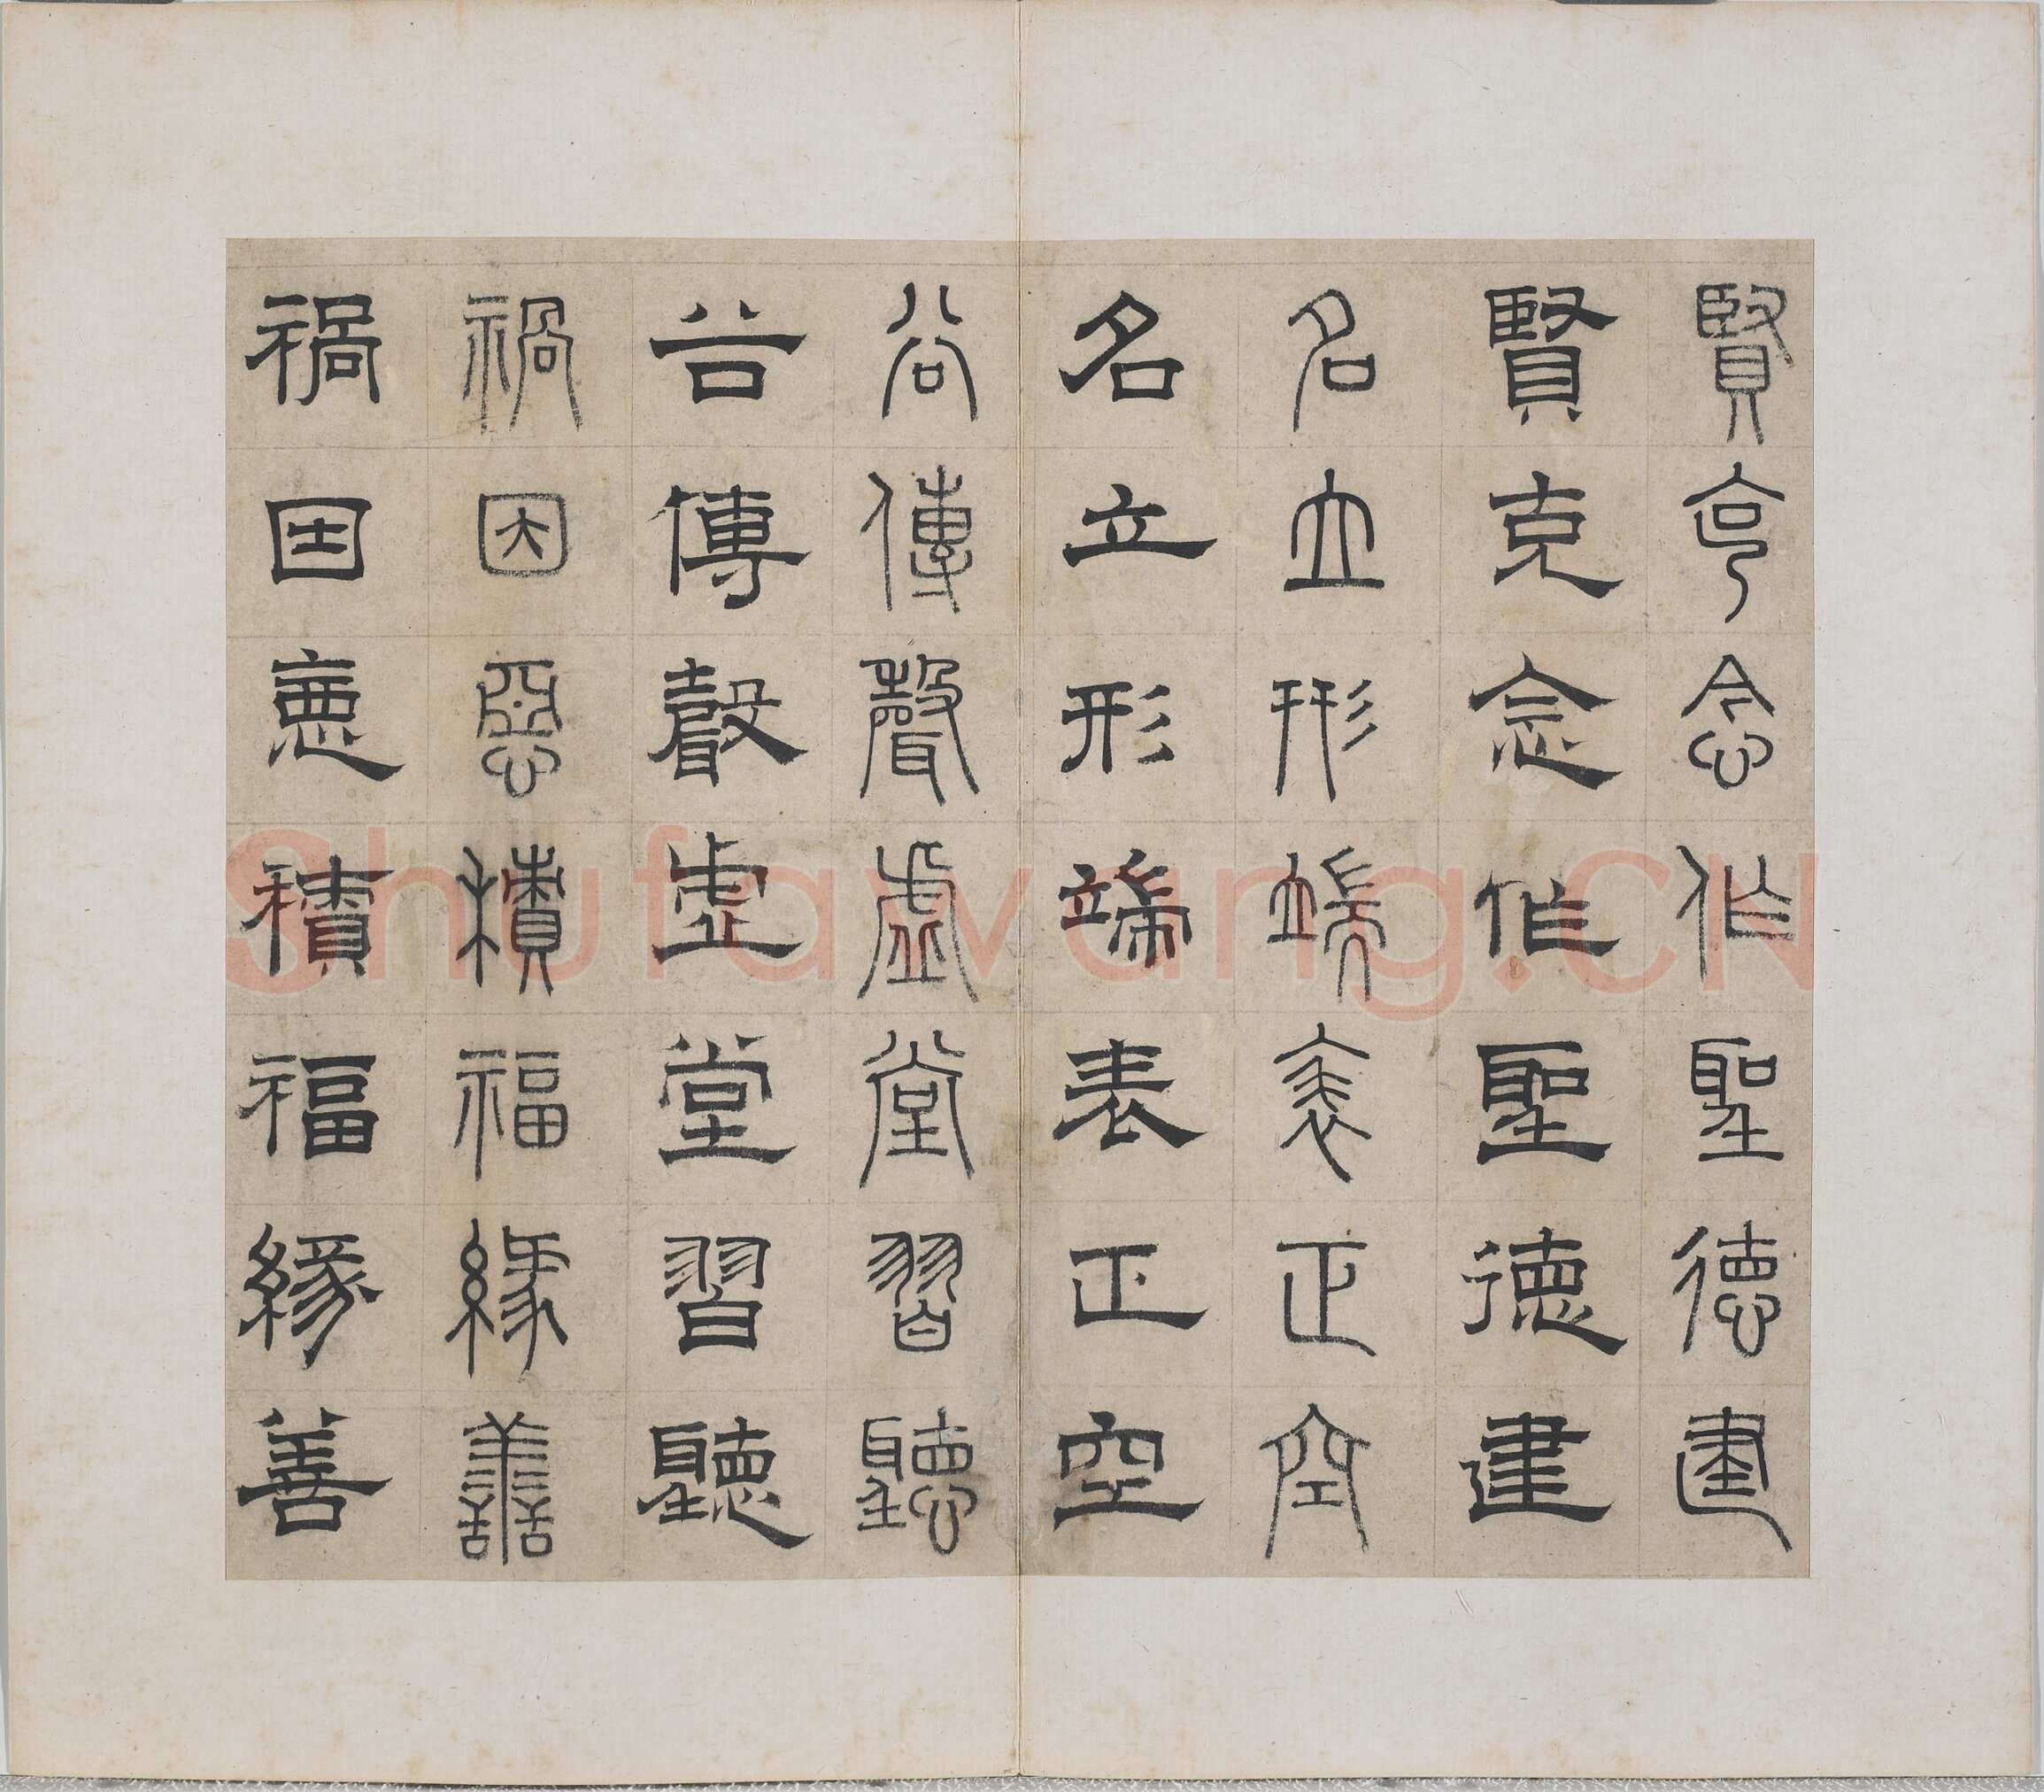 賢克念作聖德建
賢克念作聖德建
名立形端表正空
名立形端表正空
谷傳聲虛堂習聽
谷傳聲虛堂習聽
禍因惡積福緣善
禍因惡積福緣善
Shufawang.CN